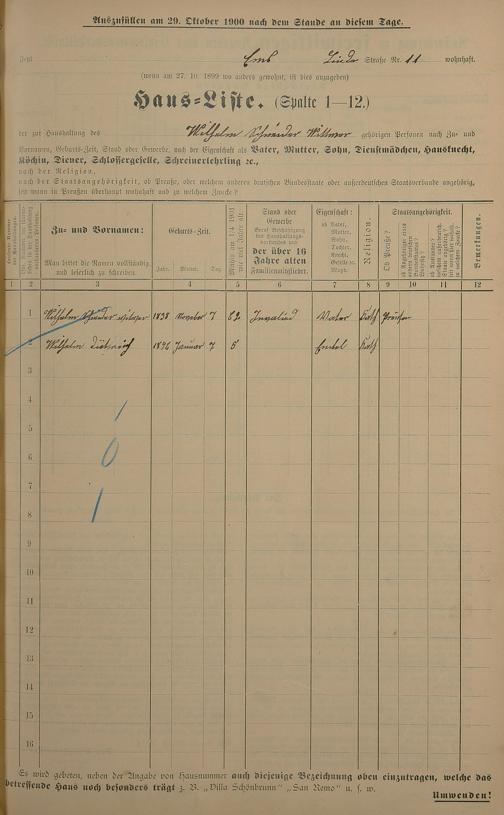 Auszufüllen am 29. Oktober 1900 nach dem Stande an diesem Tage.
Jetzt Ems Linde Straße Nr. 11 wohnhaft.
(wenn am 27. 10. 1899 wo anders gewohnt, ist dies anzugeben)
Haus-Liste. (Spalte 1—12.)
der zur Haushaltung des Wilhelm Schneider Wittwer gehörigen Personen nach Zu- und
Vornamen, Geburts-Zeit, Stand oder Gewerbe, nach der Eigenschaft als Vater, Mutter, Sohn, Dienstmädchen, Hausknecht,
Köchin, Diener, Schlossergeselle, Schreinerlehrling ec.,
nach der Religion,
nach der Staatsangehörigkeit, ob Preuße, oder welchem anderen deutschen Bundesstaate oder außerdeutschen Staatsverbande angehörig,
ist wenn in Preußen überhaupt wohnhaft und zu welchem Zwecke?
Zu- und Vornamen:
Man bittet die Namen vollständig und leserlich zu schreiben.
Geburts-Zeit.
Jahr. Monat. Tag.
Mithin am 1/4 1901 wie viel Jahre alt
Stand oder Gewerbe
der über 16 Jahre alten Familienmitglieder.
Eigenschaft:
ob Vater, Mutter, Sohn, Tochter, Knecht, Geselle o. Magd.
Religion.
Staatsangehörigkeit.
Ob Preuße?
Bemerkungen.
1 2 3 4 5 6 7 8 9 10 11 12
1 Wilhelm Schneider Wittwer 1838 November 7 62 Invalied Vater Kath Preußen
2 Wilhelm Dietrich 1896 Januar 7 5 Enkel Kath
3
4 1
5
6 0
7
8 1
9
10
11
12
13
14
15
16
Es wird gebeten, neben der Angabe von Hausnummer auch diejenige Bezeichnung oben einzutragen, welche das
betreffende Haus noch besonders trägt z. B. „Villa Schönbrunn“ „San Remo“ u. s. w.
Umwenden!